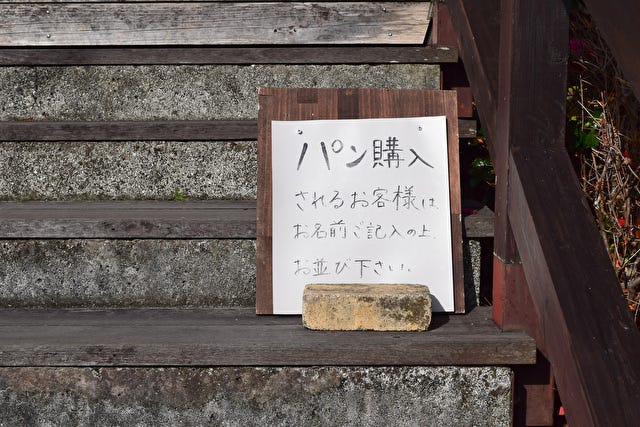 パン購入
されるお客様は、
お名前ご記入の上、
お並び下さい。